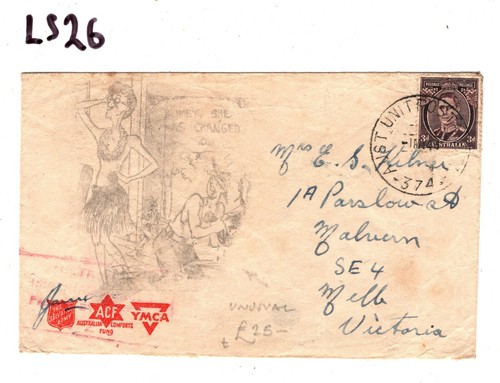 LS26
HEY, SHE
HAS CHANGED
AUST UNIT
374
POSTAGE
3d 3d
AUSTRALIA
Mrs E. S. Kilner
1A Parslow St
Malvern
SE4
Melb
Victoria
THE SALVATION ARMY
ACF
AUSTRALIAN COMFORTS
FUND
YMCA
UNUSUAL
£25-